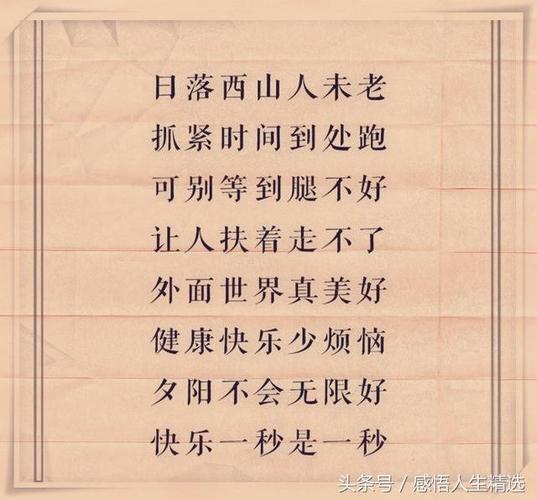 日落西山人未老
抓紧时间到处跑
可别等到腿不好
让人扶着走不了
外面世界真美好
健康快乐少烦恼
夕阳不会无限好
快乐一秒是一秒
头条号 / 感悟人生精选